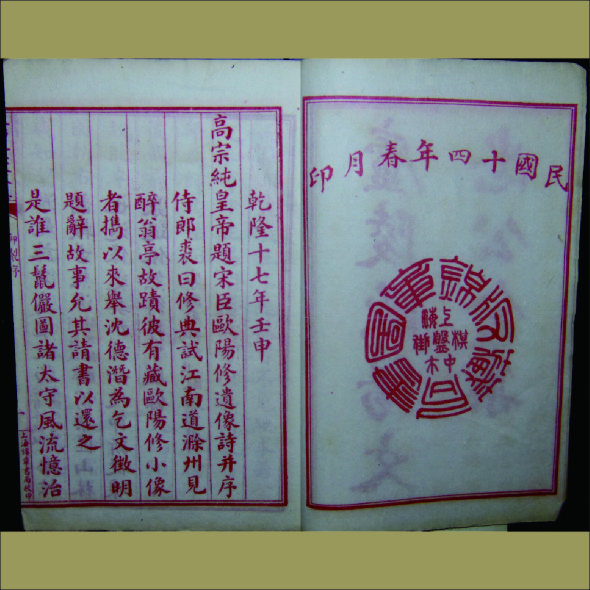 民國十四年春月印
上海錦章圖書局
上海棋盤街中市
乾隆十七年壬申
高宗純皇帝題宋臣歐陽修遺像詩并序
侍郎裘曰修典試江南道滁州見
醉翁亭故蹟彼有藏歐陽修小像
者攜以來舉沈德潛為乞文徵明
題辭故事允其請書以還之
是誰三鬣儼圖諸太守風流憶治
御製序